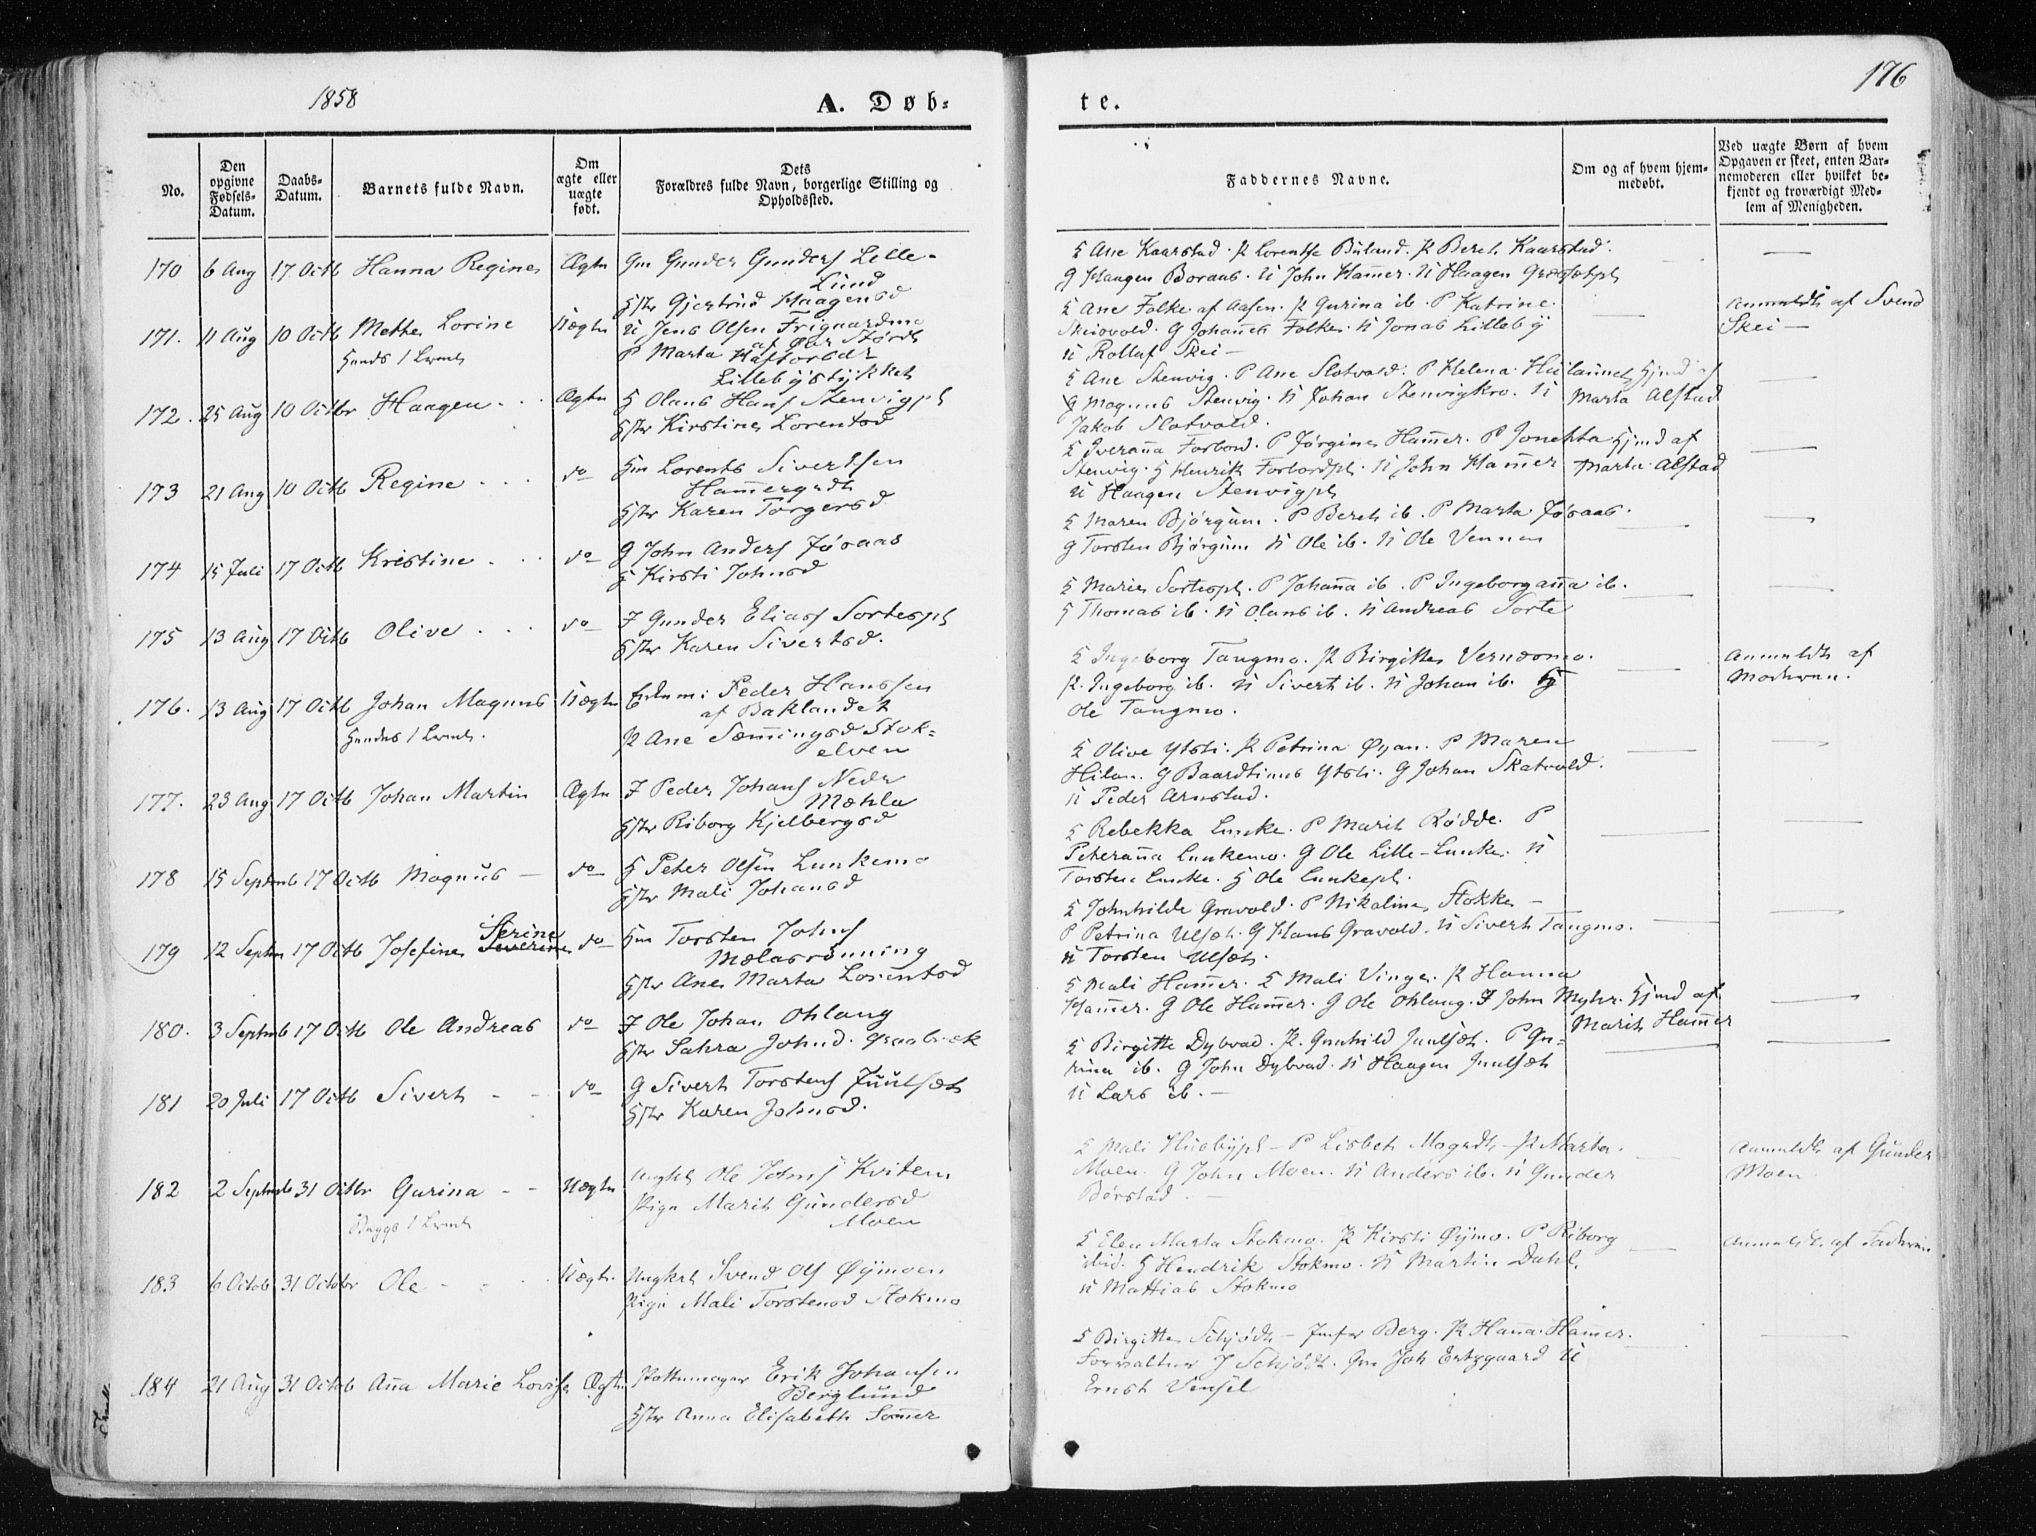 1858
A. Døb-
te.
176
No.
Den opgivne Fødsels-Datum.
Daabs-Datum.
Barnets fulde Navn.
Om ægte eller uægte født.
Dets Forældres fulde Navn, borgerlige Stilling og Opholdssted.
Faddernes Navne.
Om og af hvem hjem-medøbt.
Ved uægte Børn af hvem Opgaven er skeet, enten Bar-nemoderen eller hvilket be-kjendt og troværdigt Med-lem af Menigheden.
170 6 Aug 17 Octb Hanna Regine Ægte Gm Gunder Gunders Lille-
Lund
Hstr Gjertrud Haagensd
Ane Kaarstad. Lorentse Bülund. Beret Kaarstad.
G Haagen Boraas. U John Hamer. U Haagen
171. 11 Aug 10 Octb Mette Lorine Uægte U Jens Olsen
af Øvr Størdt
P Marta
Lillebystykket
Ane Folke af Aasen. Gurina ib. P Katrine
Skeiovold. G Johanes Folke. U Jonas Lilleby
U Rollaf Skei
Anmeldt af Svend
Skei
172. 25 Aug 10 Octbr Haagen Ægte H Olaus Hans Stenvigpl
Hstr Kirstine Lorentsd
Ane Stenvig. P Ane Slotvold. P Helena
G Magnus Stenvig. U Johan Stenvigkro. U
Jakob Slotvold.
Hjmd af
Marta Alstad
173 21 Aug 10 Octb Regine do Hm Lorents Sivertsen
Hamergrdt
Hstr Karen Torgersd
Iverana Forbord. P Jørgine Hamer. P Jonetta
Stenvig. H Henrik Forbordpl. U John Hamer
U Haagen Stenvigpl
Hjmd af
Marta Alstad
174 15 Juli 17 Octb Kristine do G John Anders Jøraas
H Kirsti Johnsd
Maren Bjørgum. P Beret ib. P Marta Jøraas.
G Torsten Bjørgum U Ole ib. U Ole Vennen
175 13 Aug 17 Octb Olive do I Gunder Elias Sortespl
Hstr Karen Sivertsd.
Marie Sortespl. P Johana ib. P Ingeborgana ib.
H Thomas ib. U Olaus ib. U Andreas Sorte
176. 13 Aug 17 Octb Johan Magnus Uægte Peder Hanssen
af Baklandet
P Ane Sæmingsd Stok-
elven
Ingeborg Tangmo. P Birgitte Vernæsmo.
P. Ingeborg ib. U Sivert ib. U Johan ib.
Ole Tangmo.
Anmeldt af
Moderen.
177. 23 Aug 17 Octb Johan Martin Ægte I Peder Johans Nedr
Mæhla
Hstr Riborg Kjelbergsd
Olive Ytsti. P Petrina Øyan. P Maren
Hilan. G Baardtinus Ytsti. G Johan Skatvold.
U Peder Arnstad.
178 15 Septmb 17 Octb Magnus do H Peter Olsen Lunkemo
Hstr Mali Johansd
Rebekka Lunke. P Marit Rødde. P
Peterana Lunkemo. G Ole Lille-Lunke. U
Torsten Lunke. H Ole Lunkepl.
179 12 Septm 17 Octb Josefine Serine Severine do Hm Torsten Johns
Mælasrønning
Hstr Ane Marta Lorentsd
Johnhilde Gravold. P Nikoline Stokke
P Petrina Ulsæt. G Hans Gravold. U Sivert Tangmo.
U Torsten Ulsæt.
180. 3 Septmb 17 Octb Ole Andreas do I Ole Johan Ohlang
Hstr Sahra Johnsd. Graabræk
Mali Hamer. Mali Vinge. P Hanna
Hamer. G Ole Hamer. G Ole Ohlang. I John Myhr.
Hjmd af
Marit Hamer
181 20 Juli 17 Octb Sivert do G Sivert Torstens Juulsæt
Hstr Karen Johnsd.
Birgitte Dybvad. P. Gunhild Juulsæt. P Gu-
rina ib. G John Dybvad. U Haagen Juulsæt
U Lars ib.
182 2 Septmb 31 Octbr Gurina Uægte Ungkl Ole Johns Kvitem
Pige Marit Gundersd
Moen
Mali Husbypl P Lisbet Mogrdt P Marta
Moen. G John Moen. U Anders ib. U Gunder
Børstad
Anmeldt af Gunder
Moen
183 6 Octob 31 Octobr Ole Uægte. Ungkrl Svend Ols Øymoen
Pige Mali Torstensd Stokmo
Elen Marta Stokmo. P Kirsti Øymo. P Riborg
ibid. H Hendrik Stokmo. U Martin Dahl.
U Mattias Stokmo
Anmeldt af Faderen
184 21 Aug 31 Octob Ana Marie Lovise Ægte Pottemager Erik Johansen
Berglund
Hstr Anna Elisabeth Sømer
Birgitte Schjødt Jmfr Berg. P Hana Hamer.
Forvalter J Schjødt. Gm Joh Ertzgaard U
Ernst Vensel